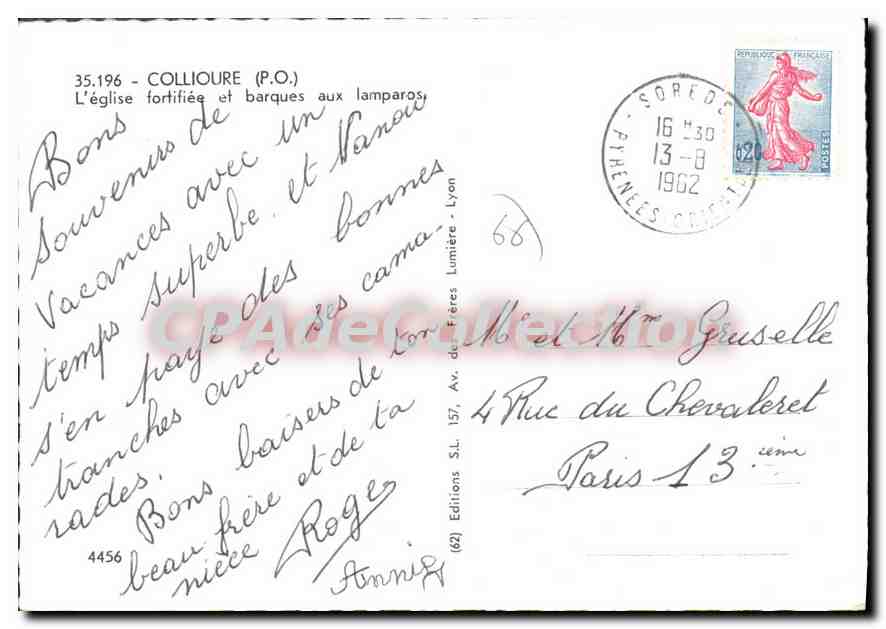 35.196 - COLLIOURE (P.O.)
L'église fortifiée et barques aux lamparos
Bons
souvenirs de
vacances avec un
temps superbe. et Nanou
s'en paye des bonnes
tranches avec ses cama-
rades.
Bons baisers de ton
beau frère et de ta
nièce
Roger
Annie
4456
(62) Editions S.L. 157, Av. des Frères Lumière - Lyon
68
REPUBLIQUE FRANÇAISE
0,20
POSTES
SOREDE
16 H 30
13-8
1962
PYRENEES-ORIENTALES
Mr et Mme Gruselle
4 Rue du Chevaleret
Paris 13 ième
CPAdeCollection